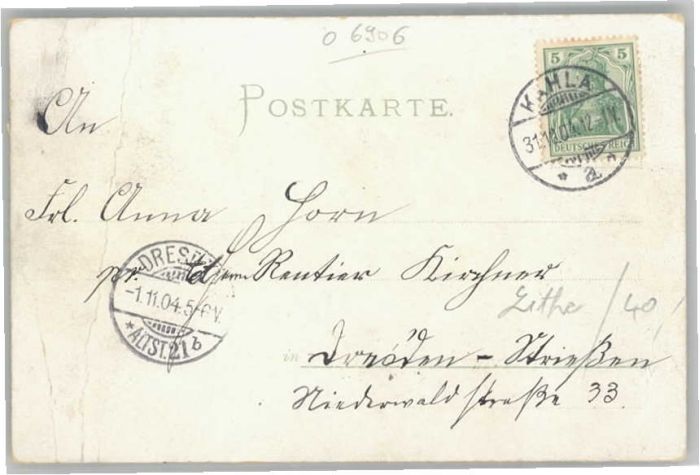 O 6906
POSTKARTE.
5 5
DEUTSCHES REICH
KAHLA
31.10.04. 12-1N.
* a
An
Frl. Anna Horn
pr. Rentier Kirchner
DRESDEN
-1.11.04.5-6V.
* ALTST. 21 b
/40
in Dresden - Striesen
Niederwaldstraße 33.